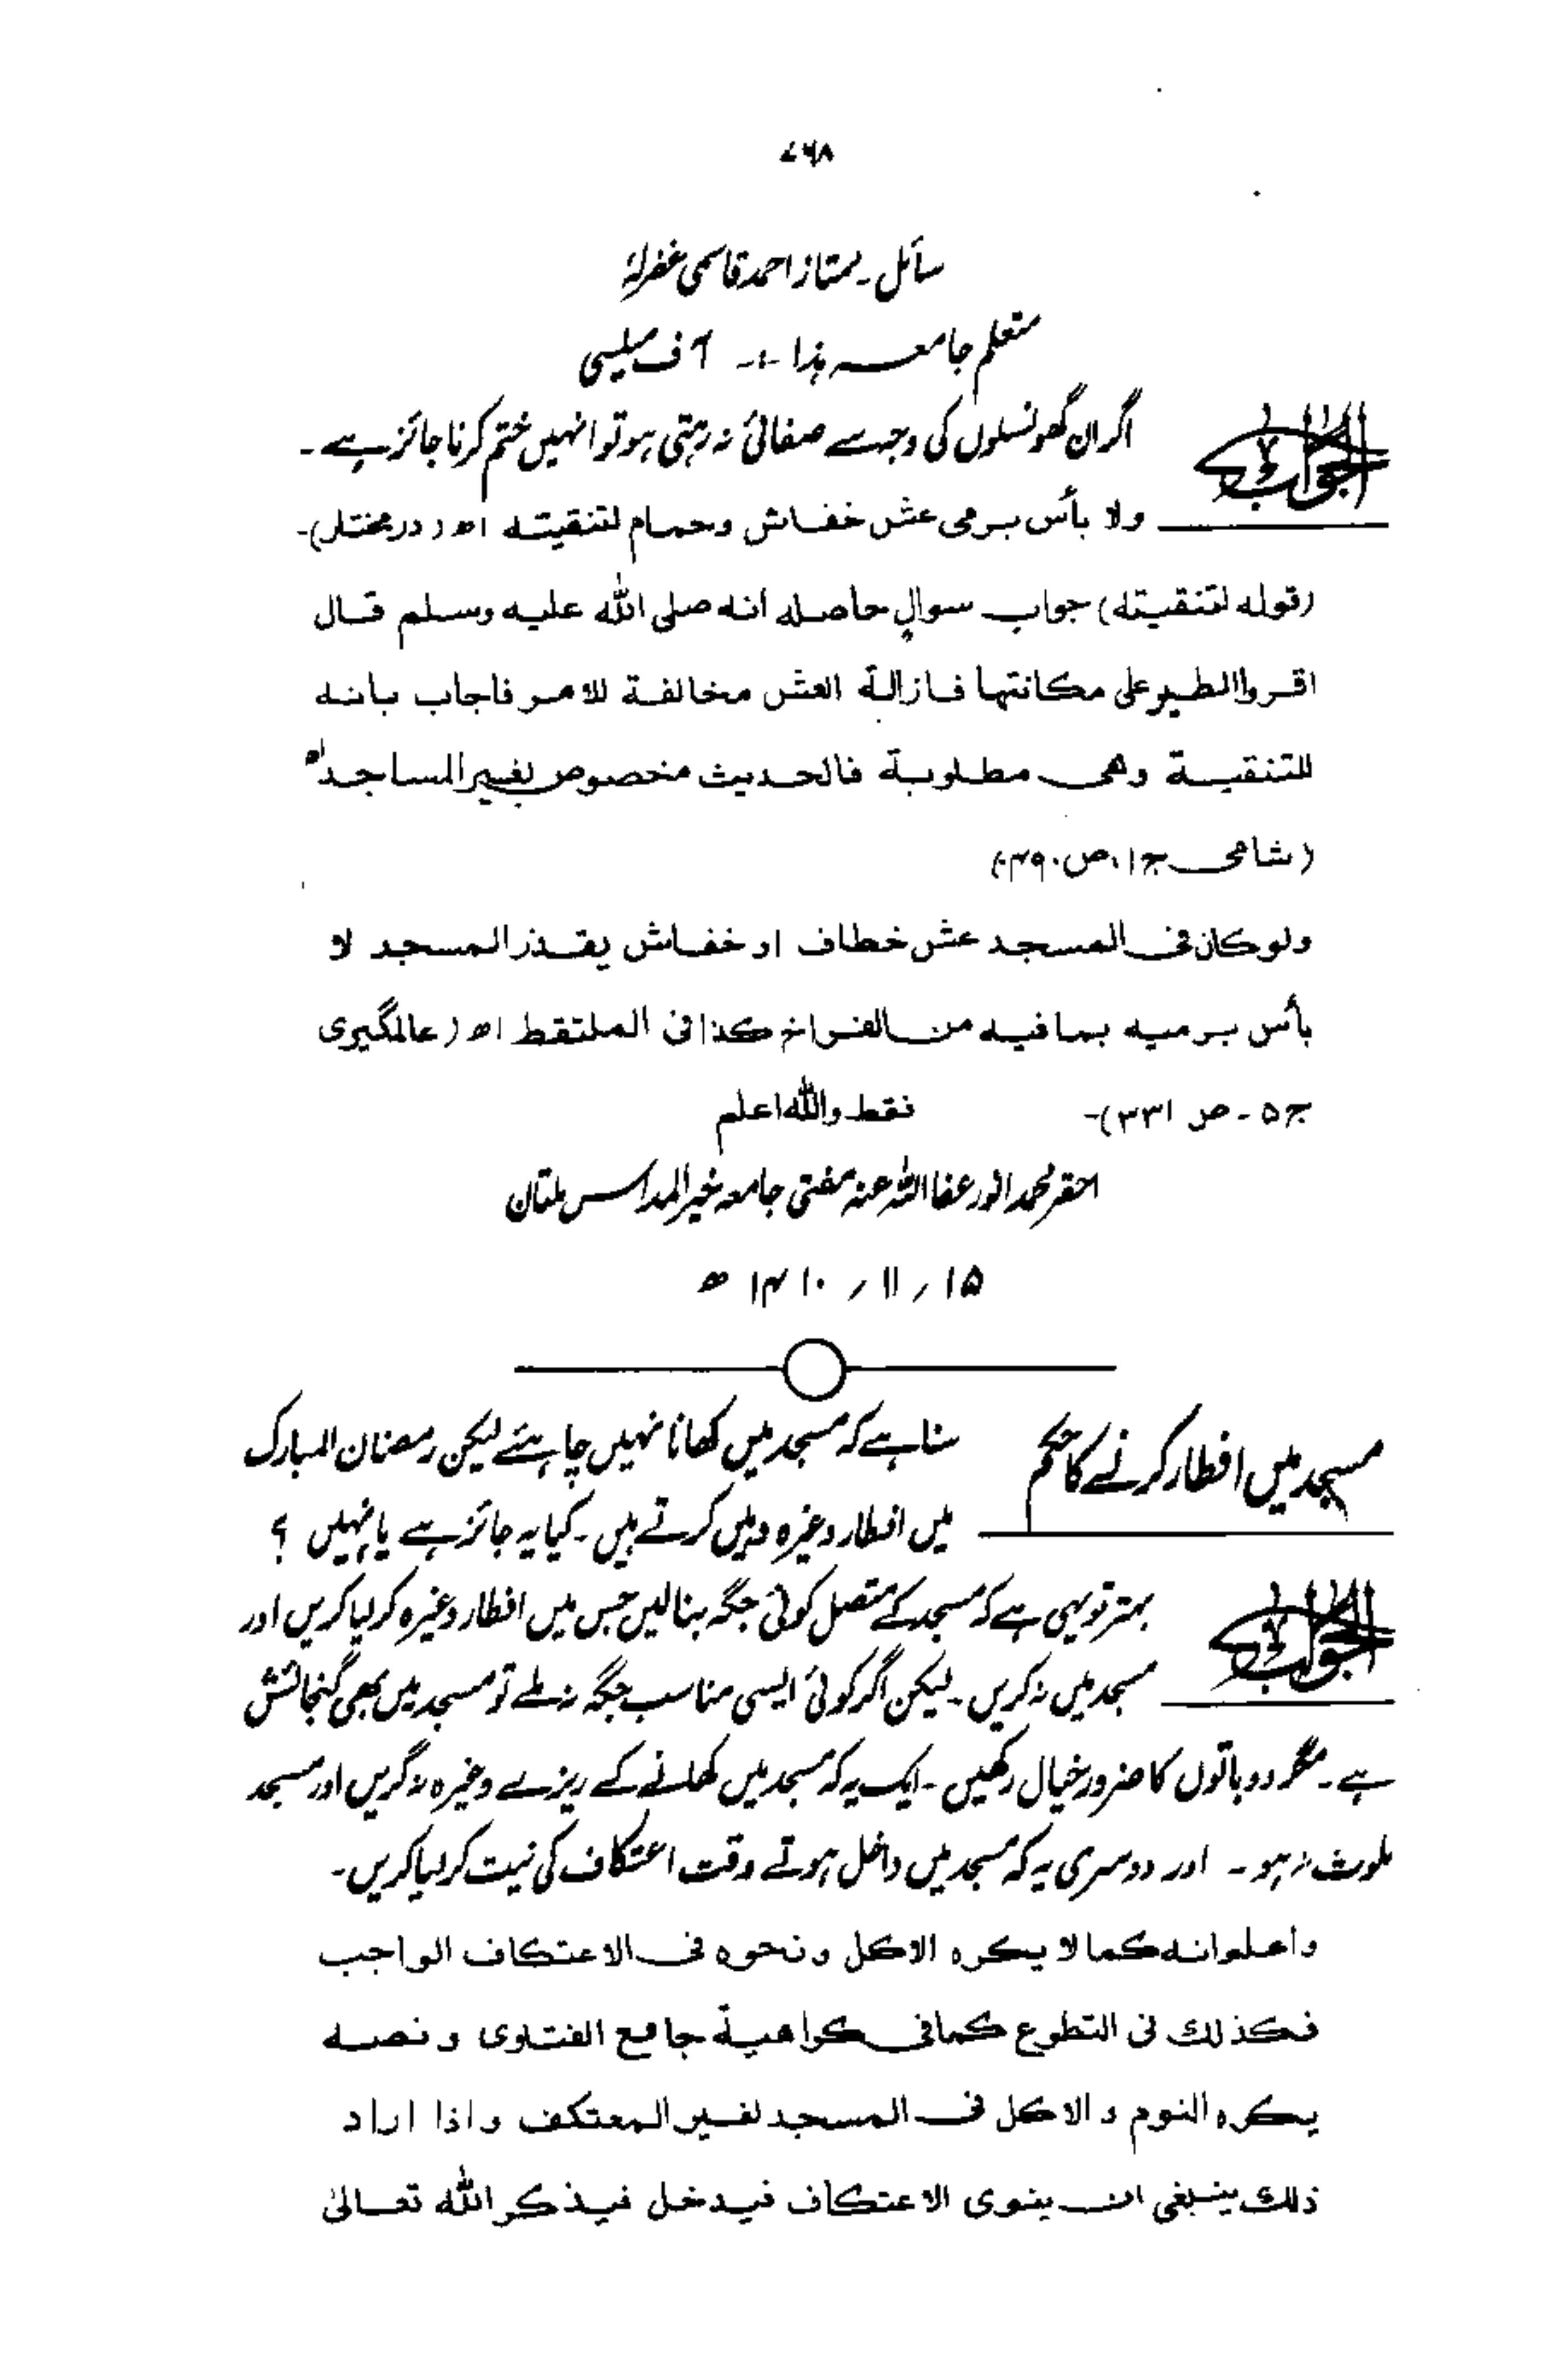 ۷۶۸
سائل۔ ممتاز احمد قاسمی غفرلہٗ
متعلم جامعہ ہذا ۔۔ آف میلسی
الجواب
اگر ان گھونسلوں کی وجہ سے صفائی نہ رہتی ہو تو انہیں ختم کرنا جائز ہے۔
ولا بأس برمی عش خفاش وحمام لتنقیتہ اھ (درمختار)۔
(قولہ لتنقیتہ) جواب سوالٍ حاصلہ انہ صلی اللہ علیہ وسلم قال
اقروا الطیر علی مکانتہا فازالۃ العش مخالفۃ للامر فاجاب بانہ
للتنقیۃ وھی مطلوبۃ فالحدیث مخصوص بغیر المساجد اھ
(شامی ج۱، ص۴۹۰)
ولو کان فی المسجد عش خطاف او خفاش یقذر المسجد لا
بأس برمیہ بما فیہ من الفراخ کذا فی الملتقط اھ (عالمگیری
ج۵ ۔ ص ۳۳۱)۔ فقط واللہ اعلم
احقر محمد انور عفا اللہ عنہ مفتی جامعہ خیر المدارس ملتان
۱۵ / ۱۱ / ۱۴۱۰ ھ
مسجد میں افطار کرنے کا حکم
سنا ہے کہ مسجد میں کھانا نہیں چاہئے لیکن رمضان المبارک
میں افطار وغیرہ وہیں کرتے ہیں۔ کیا یہ جائز ہے یا نہیں ؟
الجواب
بہتر تو یہی ہے کہ مسجد کے متصل کوئی جگہ بنالیں جس میں افطار وغیرہ کر لیا کریں اور
مسجد میں نہ کریں۔ لیکن اگر کوئی ایسی مناسب جگہ نہ ملے تو مسجد میں بھی گنجائش
ہے۔ مگر دو باتوں کا ضرور خیال رکھیں۔ ایک یہ کہ مسجد میں کھانے کے ریزے وغیرہ نہ گریں اور مسجد
ملوث نہ ہو۔ اور دوسری یہ کہ مسجد میں داخل ہوتے وقت اعتکاف کی نیت کر لیا کریں۔
واعلم انہ کما لا یکرہ الاکل ونحوہ فی الاعتکاف الواجب
فکذلک فی التطوع کما فی کراھیۃ جامع الفتاوی ونصہ
یکرہ النوم والاکل فی المسجد لغیر المعتکف واذا اراد
ذلک ینبغی ان ینوی الاعتکاف فیدخل فیذکر اللہ تعالیٰ